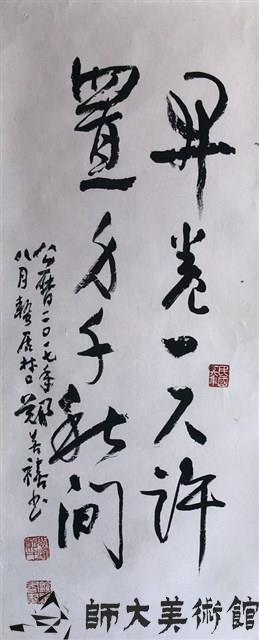 開卷一尺許
置身千秋間
公曆二〇一七年
八月蟄居林口鄭善禧書
師大美術館